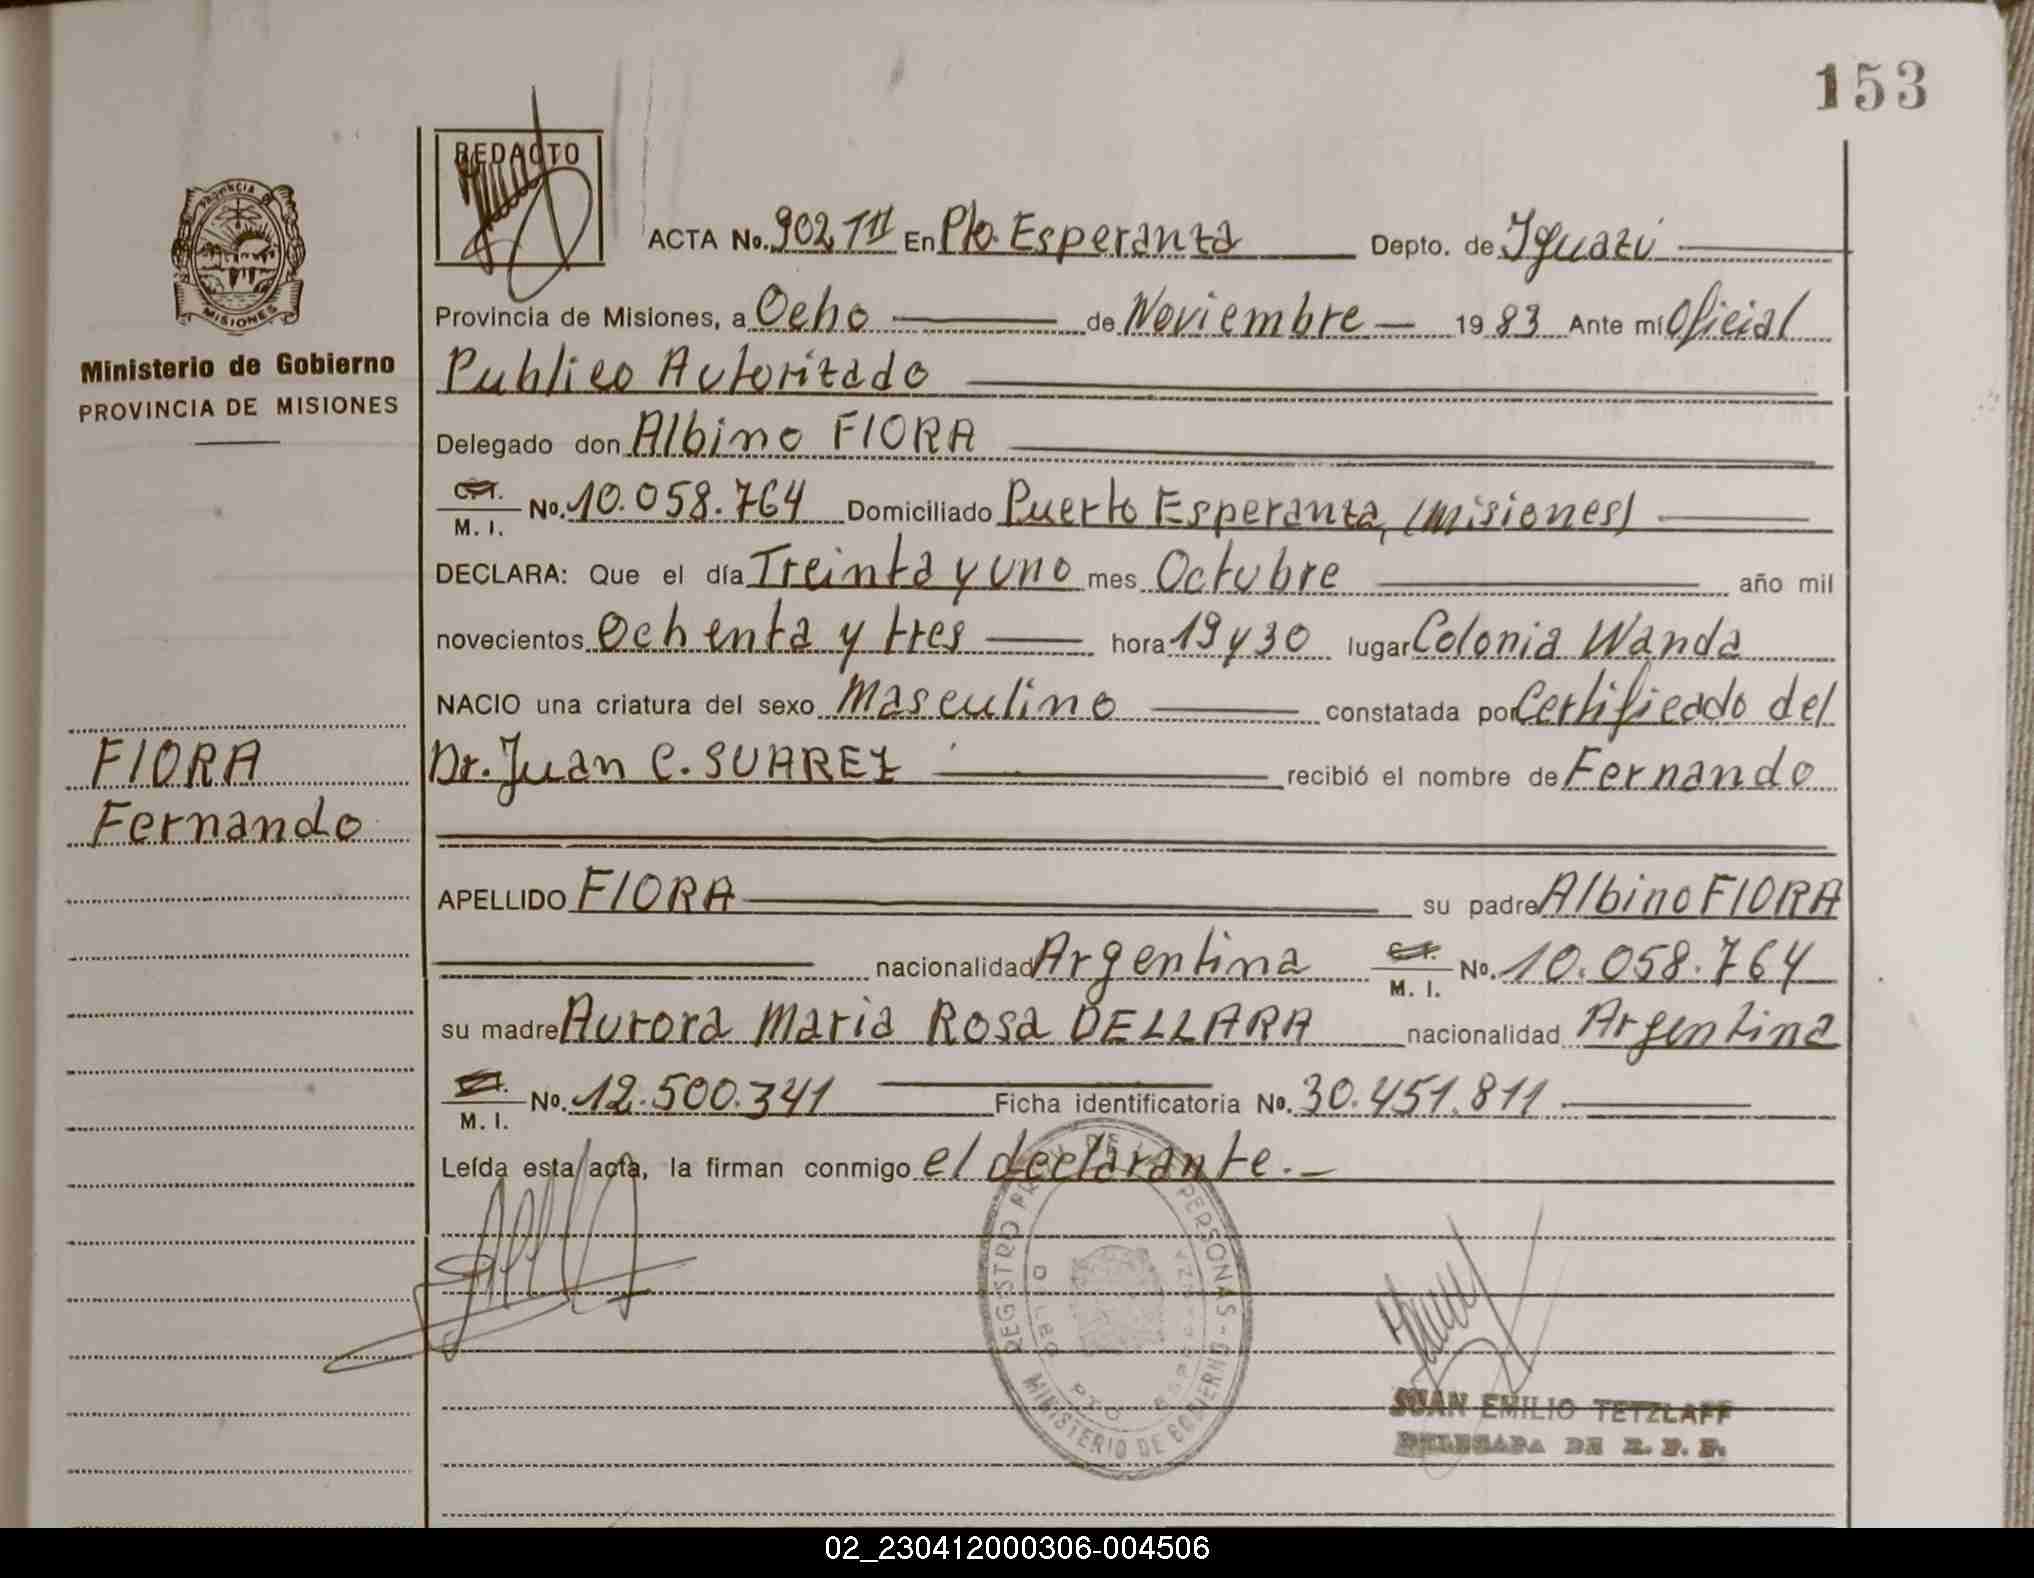 153
REDACTO
PROVINCIA DE
MISIONES
Ministerio de Gobierno
PROVINCIA DE MISIONES
ACTA No. 902 TII En Pto. Esperanza Depto. de Iguazú
Provincia de Misiones, a Ocho de Noviembre 1983 Ante mí Oficial
Publico Autorizado
Delegado don Albino FIORA
C.I. M. I. No. 10.058.764 Domiciliado Puerto Esperanza, (Misiones)
DECLARA: Que el día Treinta y uno mes Octubre año mil
novecientos Ochenta y tres hora 19 y 30 lugar Colonia Wanda
NACIO una criatura del sexo Masculino constatada por Certificado del
Dr. Juan C. SUAREZ recibió el nombre de Fernando
FIORA
Fernando
APELLIDO FIORA su padre Albino FIORA
nacionalidad Argentina C.I. M. I. No. 10.058.764
su madre Aurora Maria Rosa DELLARA nacionalidad Argentina
M. I. No. 12.500.341 Ficha identificatoria No. 30.451.811
Leída esta acta, la firman conmigo el declarante.
REGISTRO DE LAS PERSONAS - MINISTERIO DE GOBIERNO
PTO ESPERANZA
JUAN EMILIO TETZLAFF
DELEGADA DE R. P. P.
02_230412000306-004506